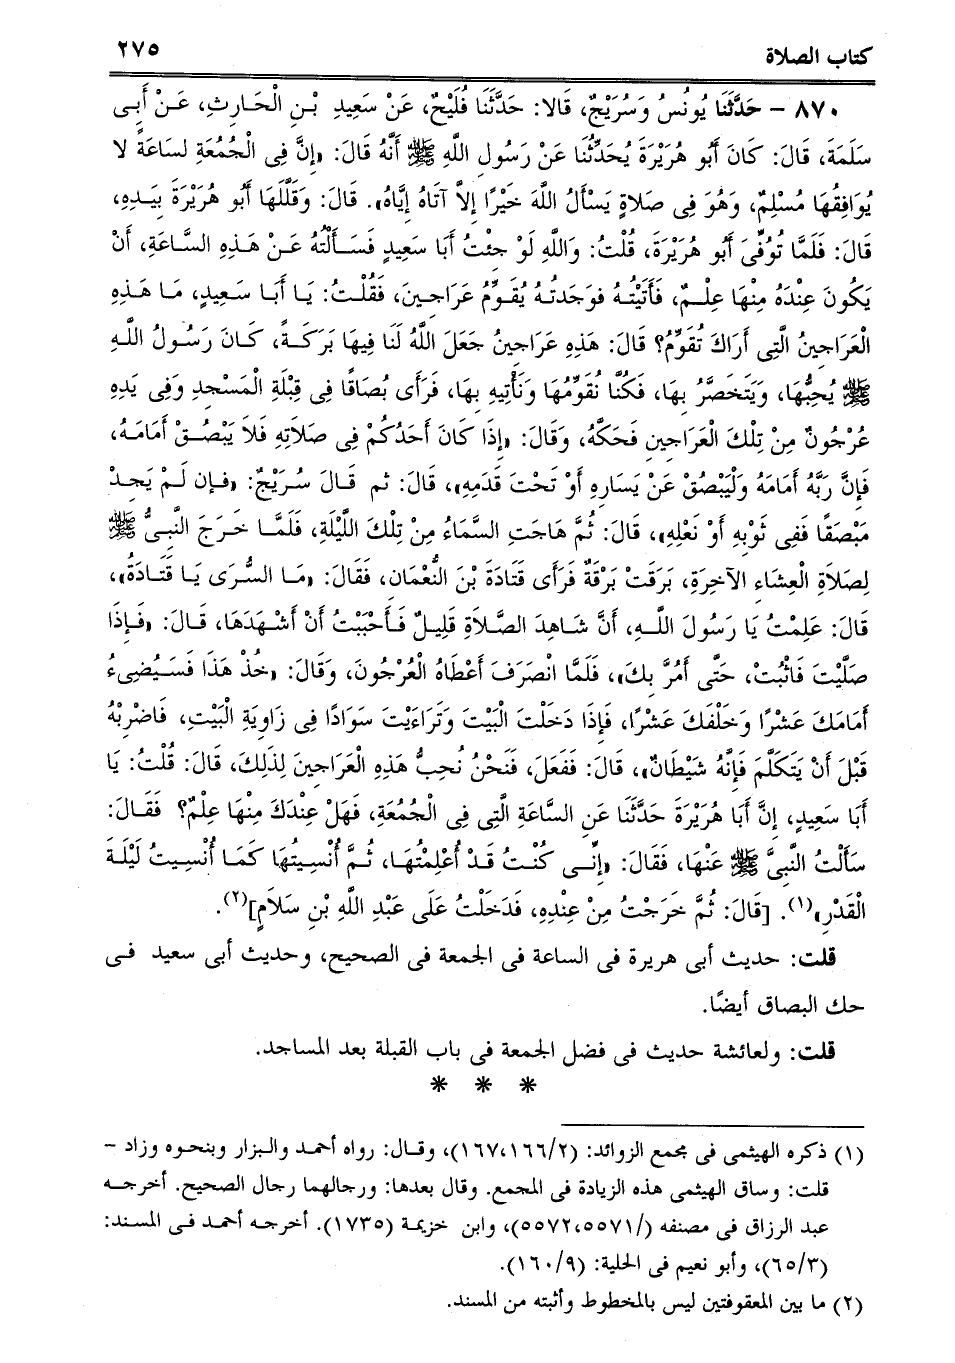 كتاب الصلاة ٢٧٥
٨٧٠ - حَدَّثَنَا يُونُسُ وَسُرَيْجٌ، قَالا: حَدَّثَنَا فُلَيْحٌ، عَنْ سَعِيدِ بْنِ الْحَارِثِ، عَنْ أَبِى
سَلَمَةَ، قَالَ: كَانَ أَبُو هُرَيْرَةَ يُحَدِّثُنَا عَنْ رَسُولِ اللَّهِ ﷺ أَنَّهُ قَالَ: «إِنَّ فِى الْجُمُعَةِ لسَاعَةً لا
يُوَافِقُهَا مُسْلِمٌ، وَهُوَ فِى صَلاةٍ يَسْأَلُ اللَّهَ خَيْرًا إِلاَّ آتَاهُ إِيَّاهُ». قَالَ: وَقَلَّلَهَا أَبُو هُرَيْرَةَ بِيَدِهِ،
قَالَ: فَلَمَّا تُوُفِّىَ أَبُو هُرَيْرَةَ، قُلْتُ: وَاللَّهِ لَوْ جِئْتُ أَبَا سَعِيدٍ فَسَأَلْتُهُ عَنْ هَذِهِ السَّاعَةِ، أَنْ
يَكُونَ عِنْدَهُ مِنْهَا عِلْمٌ، فَأَتَيْتُهُ فَوَجَدْتُهُ يُقَوِّمُ عَرَاجِينَ، فَقُلْتُ: يَا أَبَا سَعِيدٍ، مَا هَذِهِ
الْعَرَاجِينُ الَّتِى أَرَاكَ تُقَوِّمُ؟ قَالَ: هَذِهِ عَرَاجِينُ جَعَلَ اللَّهُ لَنَا فِيهَا بَرَكَةً، كَانَ رَسُولُ اللَّهِ
ﷺ يُحِبُّهَا، وَيَتَخَصَّرُ بِهَا، فَكُنَّا نُقَوِّمُهَا وَنَأْتِيهِ بِهَا، فَرَأَى بُصَاقًا فِى قِبْلَةِ الْمَسْجِدِ وَفِى يَدِهِ
عُرْجُونٌ مِنْ تِلْكَ الْعَرَاجِينِ فَحَكَّهُ، وَقَالَ: «إِذَا كَانَ أَحَدُكُمْ فِى صَلاتِهِ فَلاَ يَبْصُقْ أَمَامَهُ،
فَإِنَّ رَبَّهُ أَمَامَهُ وَلْيَبْصُقْ عَنْ يَسَارِهِ أَوْ تَحْتَ قَدَمِهِ»، قَالَ: ثم قَالَ سُرَيْجٌ: «فإن لَمْ يَجِدْ
مَبْصَقًا فَفِى ثَوْبِهِ أَوْ نَعْلِهِ»، قَالَ: ثُمَّ هَاجَتِ السَّمَاءُ مِنْ تِلْكَ اللَّيْلَةِ، فَلَمَّا خَرَجَ النَّبِىُّ ﷺ
لِصَلاَةِ الْعِشَاءِ الآخِرَةِ، بَرَقَتْ بَرْقَةٌ فَرَأَى قَتَادَةَ بْنَ النُّعْمَانِ، فَقَالَ: «مَا السُّرَى يَا قَتَادَةُ»،
قَالَ: عَلِمْتُ يَا رَسُولَ اللَّهِ، أَنَّ شَاهِدَ الصَّلاَةِ قَلِيلٌ فَأَحْبَبْتُ أَنْ أَشْهَدَهَا، قَالَ: «فَإِذَا
صَلَّيْتَ فَاثْبُتْ، حَتَّى أَمُرَّ بِكَ»، فَلَمَّا انْصَرَفَ أَعْطَاهُ الْعُرْجُونَ، وَقَالَ: «خُذْ هَذَا فَسَيُضِىءُ
أَمَامَكَ عَشْرًا وَخَلْفَكَ عَشْرًا، فَإِذَا دَخَلْتَ الْبَيْتَ وَتَرَاءَيْتَ سَوَادًا فِى زَاوِيَةِ الْبَيْتِ، فَاضْرِبْهُ
قَبْلَ أَنْ يَتَكَلَّمَ فَإِنَّهُ شَيْطَانٌ»، قَالَ: فَفَعَلَ، فَنَحْنُ نُحِبُّ هَذِهِ الْعَرَاجِينَ لِذَلِكَ، قَالَ: قُلْتُ: يَا
أَبَا سَعِيدٍ، إِنَّ أَبَا هُرَيْرَةَ حَدَّثَنَا عَنِ السَّاعَةِ الَّتِى فِى الْجُمُعَةِ، فَهَلْ عِنْدَكَ مِنْهَا عِلْمٌ؟ فَقَالَ:
سَأَلْتُ النَّبِىَّ ﷺ عَنْهَا، فَقَالَ: «إِنِّى كُنْتُ قَدْ أُعْلِمْتُهَا، ثُمَّ أُنْسِيتُهَا كَمَا أُنْسِيتُ لَيْلَةَ
الْقَدْرِ»(١). [قَالَ: ثُمَّ خَرَجْتُ مِنْ عِنْدِهِ، فَدَخَلْتُ عَلَى عَبْدِ اللَّهِ بْنِ سَلاَمٍ](٢).
قلت: حديث أبى هريرة فى الساعة فى الجمعة فى الصحيح، وحديث أبى سعيد فى
حك البصاق أيضًا.
قلت: ولعائشة حديث فى فضل الجمعة فى باب القبلة بعد المساجد.
* * *
(١) ذكره الهيثمى فى مجمع الزوائد: (١٦٧،١٦٦/٢)، وقال: رواه أحمد والبزار وبنحوه وزاد -
قلت: وساق الهيثمى هذه الزيادة فى المجمع. وقال بعدها: ورجالهما رجال الصحيح. أخرجه
عبد الرزاق فى مصنفه (/٥٥٧٢،٥٥٧١)، وابن خزيمة (١٧٣٥). أخرجه أحمد فى المسند:
(٦٥/٣)، وأبو نعيم فى الحلية: (١٦٠/٩).
(٢) ما بين المعقوفتين ليس بالمخطوط وأثبته من المسند.